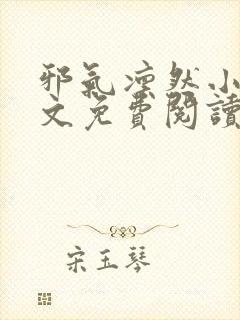 邪氣凜然小
文免費閱讀
宋玉琴